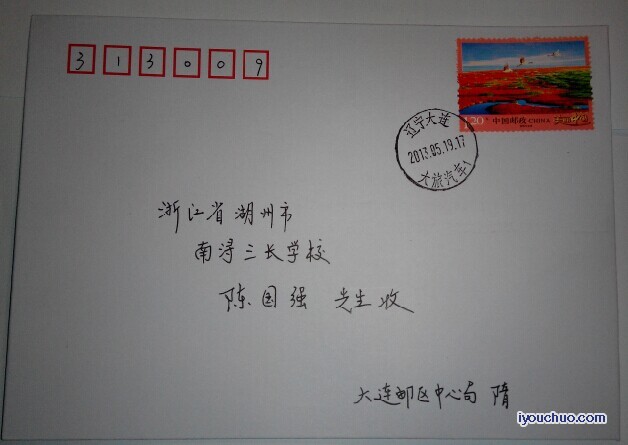 313009
1.20元
中国邮政 CHINA
辽宁大连
2013.05.19.17
大旅汽车1
浙江省湖州市
南浔三长学校
陈国强 先生收
大连邮区中心局 隋
iyouchuo.com